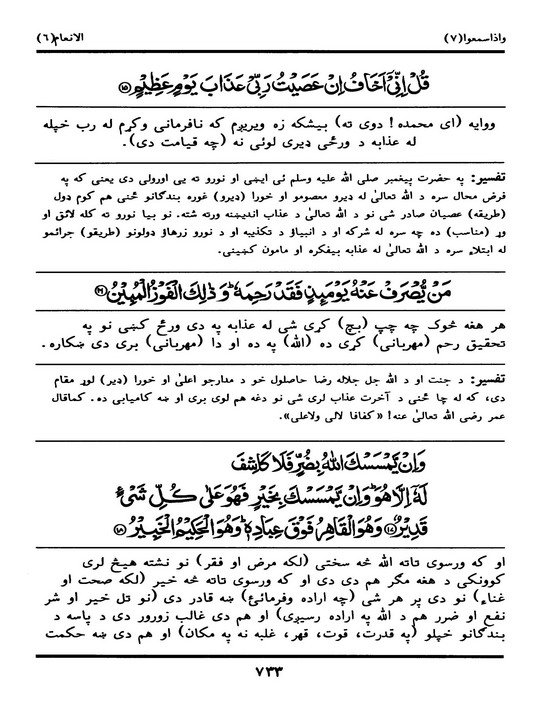 واذاسمعوا(۷) الانعام(٦)
قُلْ اِنِّيْٓ اَخَافُ اِنْ عَصَيْتُ رَبِّيْ عَذَابَ يَوْمٍ عَظِيْمٍ ۝۱۵
ووایه (ای محمده! دوی ته) بیشکه زه ویریږم که نافرمانی وکړم له رب خپله
له عذابه د ورځې ډیری لوئی نه (چه قیامت دی).
تفسیر: په حضرت پیغمبر صلی الله علیه وسلم ئی ایښی او نورو ته یی اورولی دی یعنی که په
فرض محال سره د الله تعالیٰ له ډیرو معصومو او خورا (ډیرو) غوره بندګانو څنی هم کوم ډول
(طریقه) عصیان صادر شی نو د الله تعالیٰ د عذاب اندیښنه ورته شته. نو بیا نورو ته کله لائق او
وړ (مناسب) ده چه سره له شرکه او د انبیاؤ د تکذیبه او د نورو زرهاؤ ډولونو (طریقو) جرائمو
له ابتلاء سره د الله تعالیٰ له عذابه بیفکره او مامون کښینی.
مَنْ يُّصْرَفْ عَنْهُ يَوْمَىِٕذٍ فَقَدْ رَحِمَهٗ ؕ وَ ذٰلِكَ الْفَوْزُ الْمُبِيْنُ ۝۱۶
هر هغه څوک چه چپ (بچ) کړی شی له عذابه په دی ورځ کښی نو په
تحقیق رحم (مهربانی) کړی ده (الله) په ده او دا (مهربانی) بری دی ښکاره.
تفسیر: د جنت او د الله جل جلاله رضا حاصلول خو د مدارجو اعلیٰ او خورا (ډیر) لوړ مقام
دی، که له چا څنی د آخرت عذاب لری شی نو دغه هم لوی بری او ښه کامیابی ده. کماقال
عمر رضی الله تعالیٰ عنه! «کفافا لالی ولاعلی».
وَاِنْ يَّمْسَسْكَ اللّٰهُ بِضُرٍّ فَلَا كَاشِفَ
لَهٗٓ اِلَّا هُوَ ؕ وَاِنْ يَّمْسَسْكَ بِخَيْرٍ فَهُوَ عَلٰى كُلِّ شَيْءٍ
قَدِيْرٌ ۝۱۷ وَهُوَ الْقَاهِرُ فَوْقَ عِبَادِهٖ ؕ وَهُوَ الْحَكِيْمُ الْخَبِيْرُ ۝۱۸
او که ورسوی تاته الله څه سختی (لکه مرض او فقر) نو نشته هیڅ لری
کوونکی د هغه مگر هم دی دی او که ورسوی تاته څه خیر (لکه صحت او
غناء) نو دی پر هر شی (چه اراده وفرمائئ) ښه قادر دی (نو تل خیر او شر
نفع او ضرر هم د الله په اراده رسیږی) او هم دی غالب زورور دی د پاسه د
بندګانو خپلو (په قدرت، قوت، قهر، غلبه نه په مکان) او هم دی ښه حکمت
۷۳۳